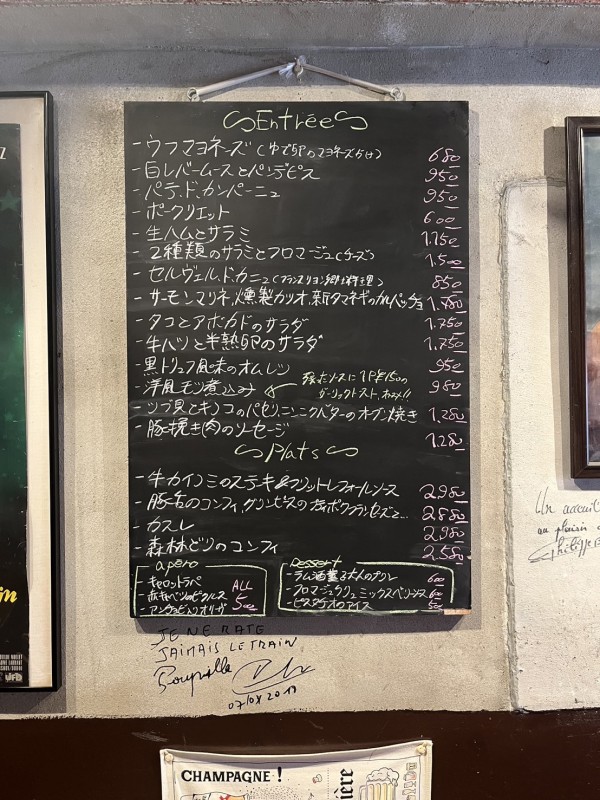 Entrée
- ウフマヨネーズ(ゆで卵のマヨネーズがけ) 680
- 白レバームースとパンデピス 950
- パテ.ド.カンパーニュ 950
- ポークリエット 600
- 生ハムとサラミ 1.150
- 2種類のサラミとフロマージュ(チーズ) 1.500
- セルヴェル.ド.カニュ(フランスリヨン郷土料理) 850
- サーモンマリネ,燻製カツオ,新タマネギのカルパッチョ 1.780
- タコとアボカドのサラダ 1.750
- 牛ハツと半熟卵のサラダ 1.750
- 黒トリュフ風味のオムレツ 950
- 洋風モツ煮込み 980
残ったソースに1P¥150の
ガーリックトースト、おすすめ!!
- ツブ貝とキノコのパセリ.ニンニクバターのオーブン焼き 1,280
- 豚挽き肉のソーセージ 1.280
Plats
- 牛カイノミのステキ&フリットレフォールソース 2.980
- 豚舌のコンフィ 2.880
- カスレ 2.980
- 森林どりのコンフィ 2.580
apéro
- キャロットラペ
- 赤キャベツのピクルス
- アンチョビ入りオリーブ
ALL
500
Dessert
- ラム酒薫る大人のプリン 600
- フロマージュクリュ ミックスベリーソース 600
- ピスタチオのアイス 500
JE NE RATE
JAIMAIS LE TRAIN
07/08/2019
Un accueil
au plaisir
Philippe
CHAMPAGNE !
ière